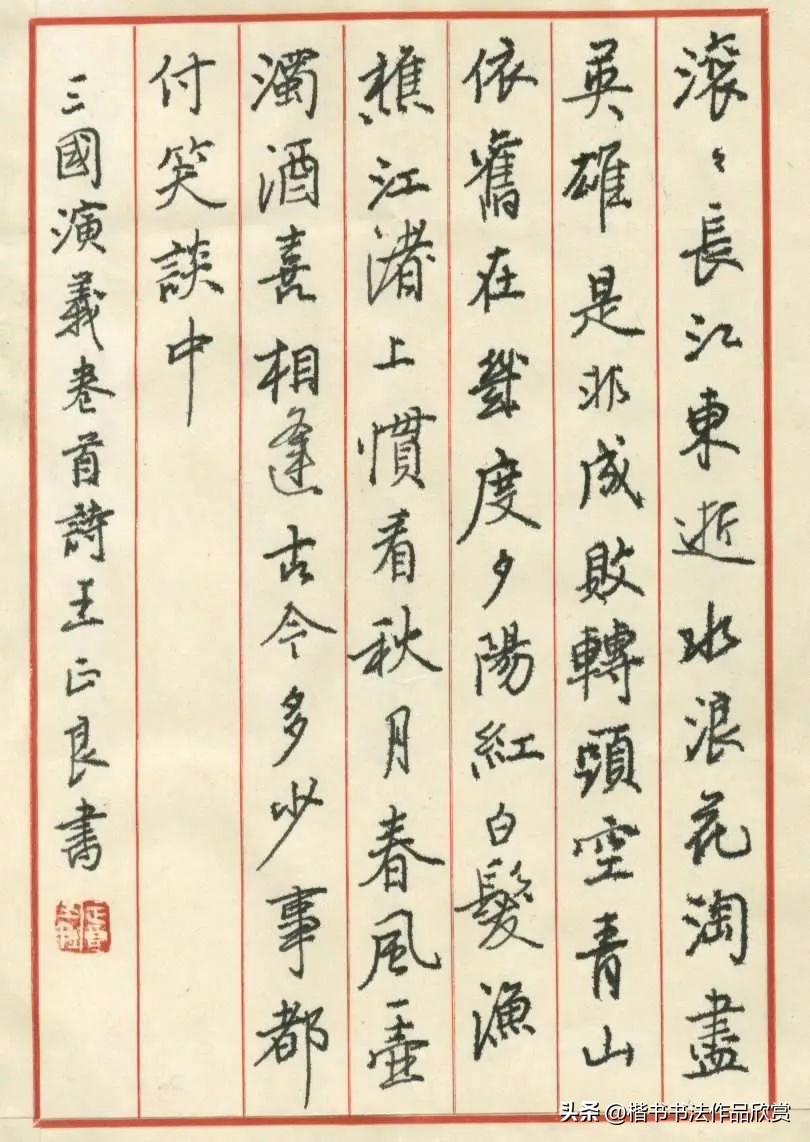 滚〻長江東逝水浪花淘盡
英雄是非成敗轉頭空青山
依舊在幾度夕陽紅白髮漁
樵江渚上慣看秋月春風一壺
濁酒喜相逢古今多少事都
付笑談中
三國演義卷首詩王正良書
头条 @楷书书法作品欣赏